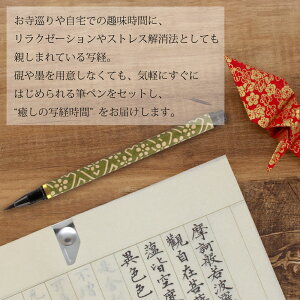 お寺巡りや自宅での趣味時間に、
リラクゼーションやストレス解消法としても
親しまれている写経。
硯や墨を用意しなくても、気軽にすぐに
はじめられる筆ペンをセットし、
“癒しの写経時間” をお届けします。
摩訶般若波
觀自在菩
蘊皆空度
異色色